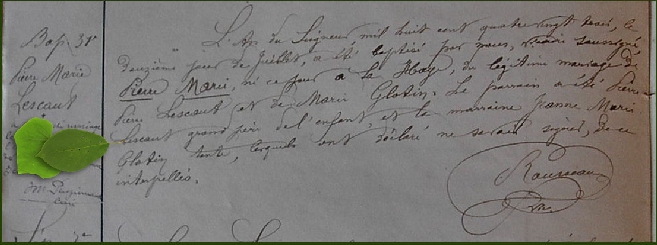 Bap. 31
Pierre Marie
Lescaut
L'An du Seigneur mil huit cent quatre vingt trois, le
Douzième jour de Juillet, a été baptisé par nous, vicaire soussigné,
Pierre Marie, né ce jour à la Haye, du légitime mariage de
Pierre Lescaut et de Marie Glotin. Le parrain a été Pierre
Lescaut grand père de l'enfant et la marraine Jeanne Marie
Glotin tante, lesquels ont déclaré ne savoir signer, de ce
interpellés.